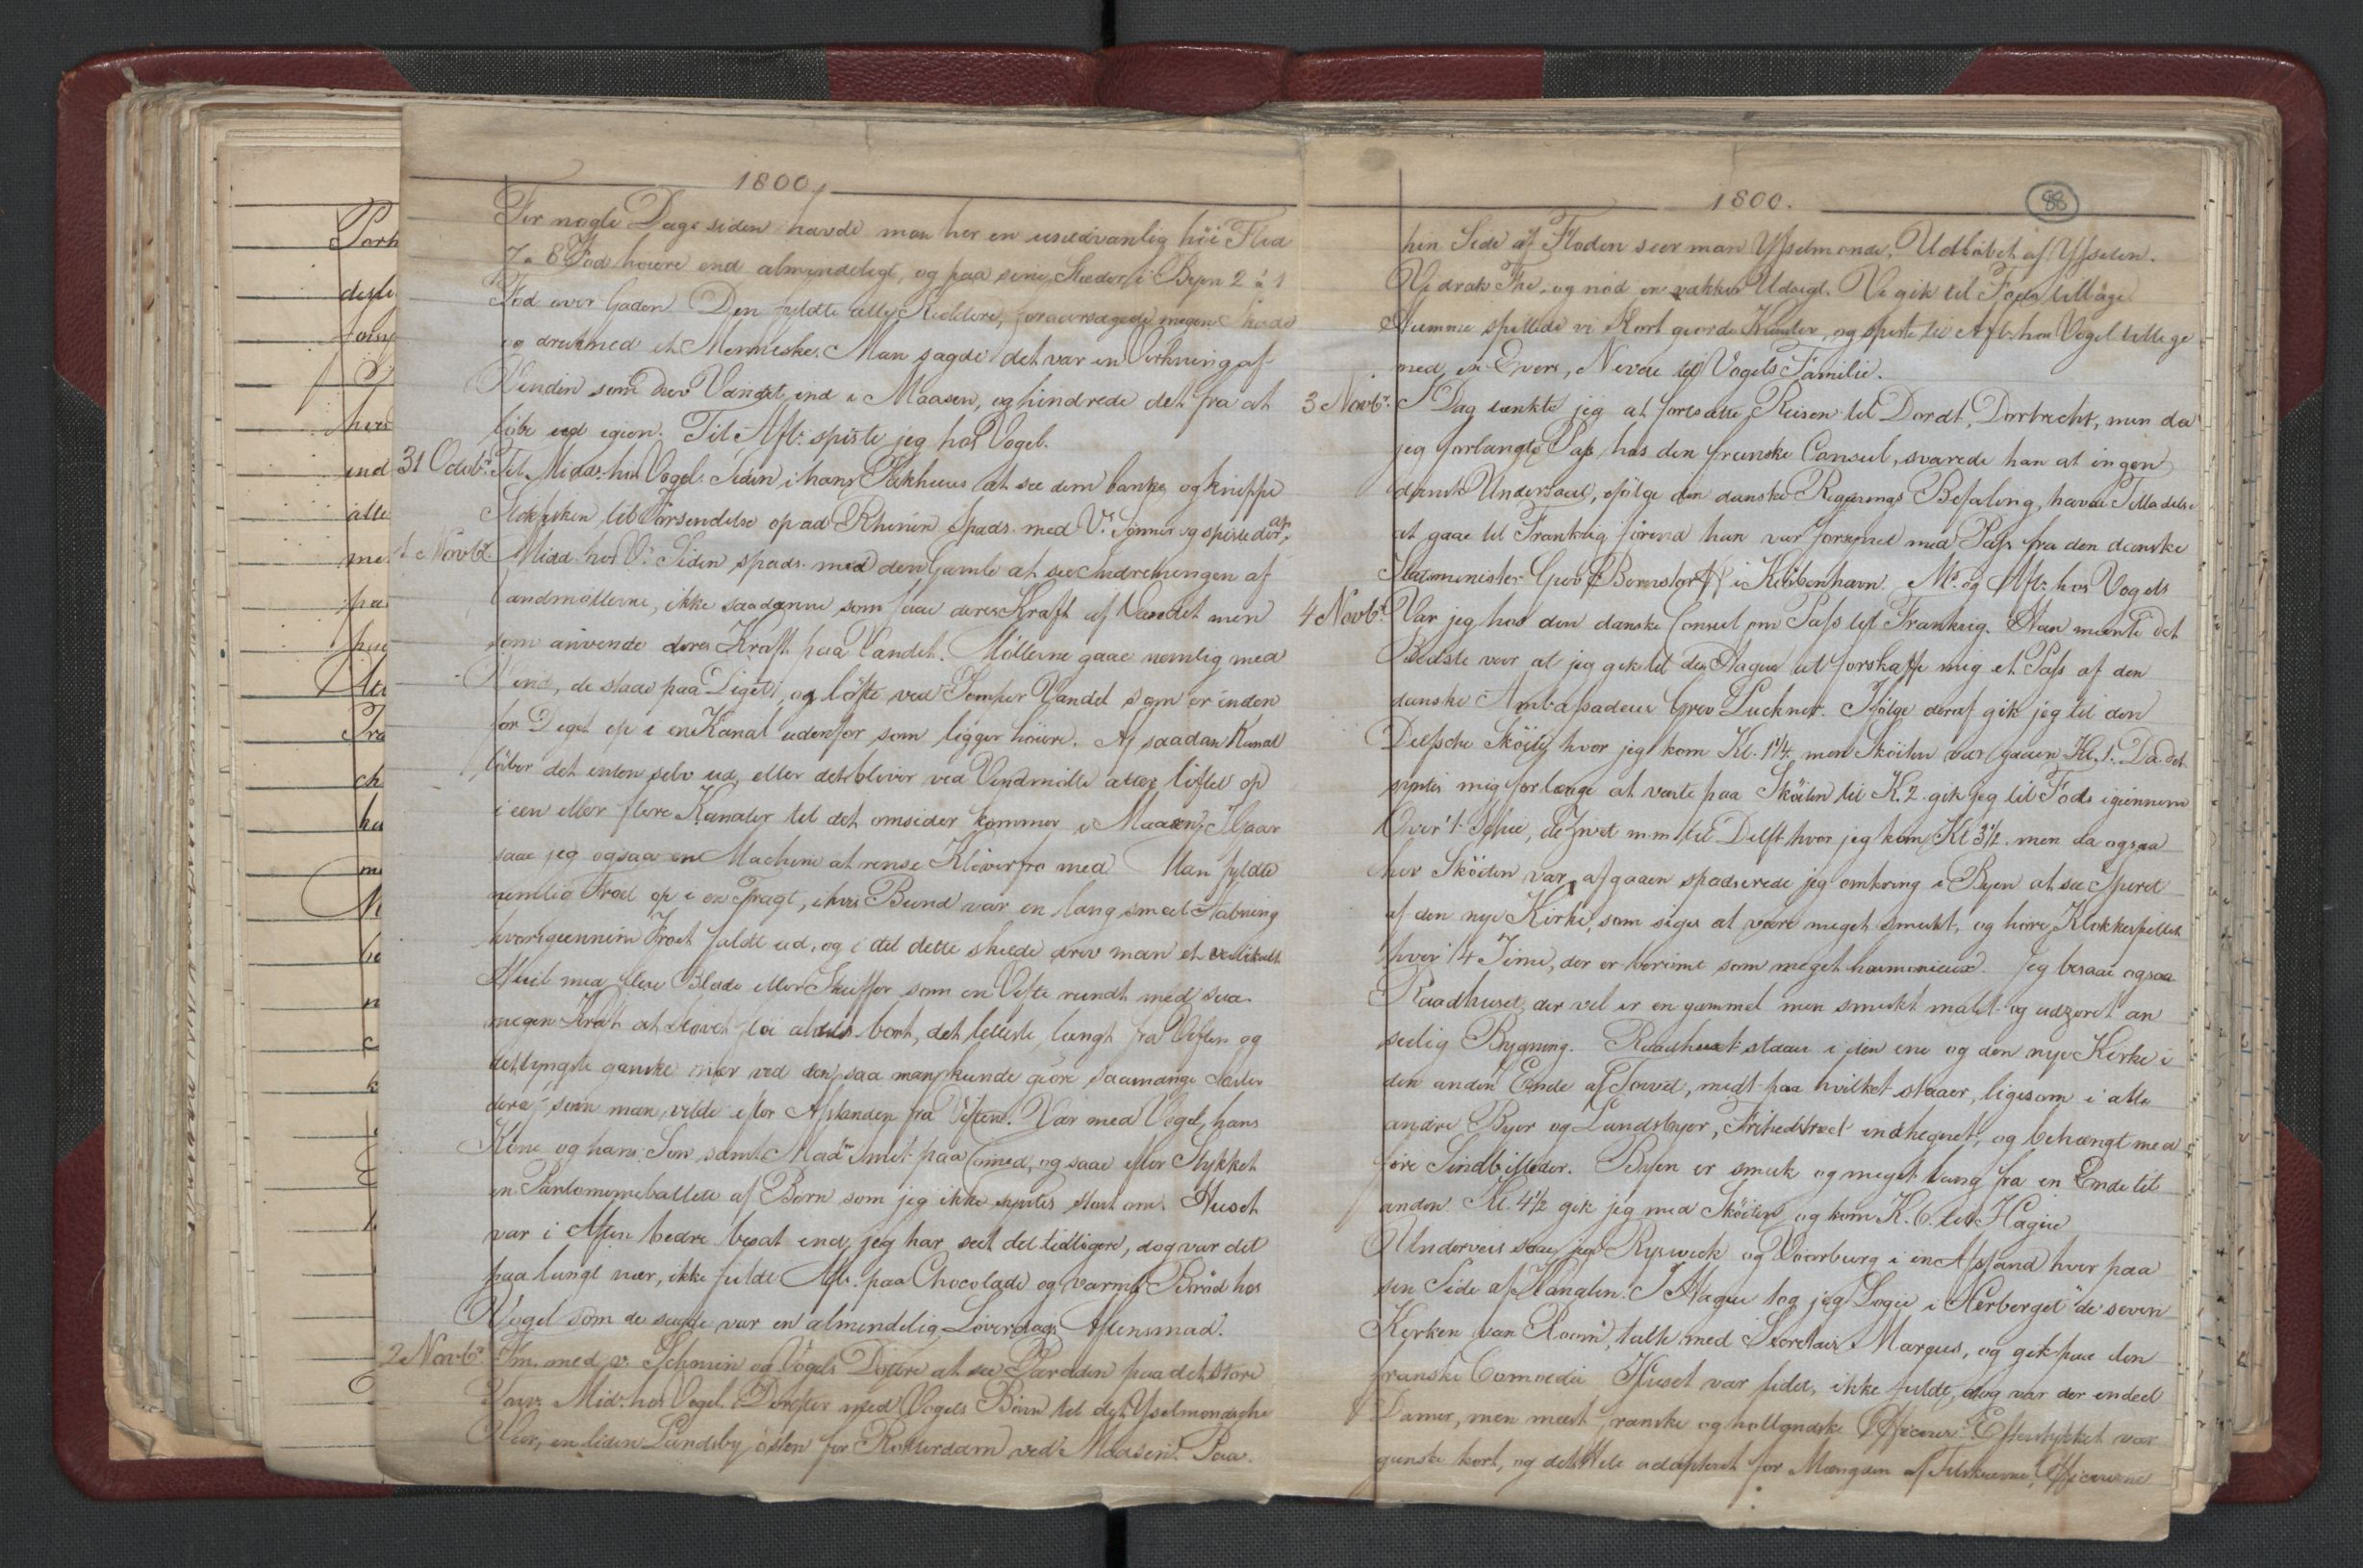 1800.
For nogle Dage siden havde man her en usædvanlig höi Flod
7 a 8 Fod høiere end almindeligt, og paa sine Stæder i Byen 2 à 1
Fod over Gaden. Den fyldte alle Kieldere, foraarsagede megen Skade
og druknede et Menneske. Man sagde det var en Virkning af
Vinden som drev Vandet ind i Maasen, og hindrede det fra at
löbe ud igien. Til Aft: spiste jeg hos Vogel.
31 Octbr. Til Midd. hos Vogel. Siden i hans Pakhuus at see dem banke og knippe
Stokfisken til Forsendelse op ad Rhinen. Spads. med V.s Sönner og spiste der Aft.
1 Novbr. Midd. hos V. Siden spads. med den Gamle at see Indretningen af
Vandmøllerne, ikke saadanne som faae deres Kraft af Vandet men
som anvende deres Kraft paa Vandet. Møllerne gaae nemlig med
Vind, de staae paa Diget, og löfte ved Pomper Vandet som er inden
for Diget op i en Kanal udenfor som ligger höiere. Af saadan Kanal
löber det enten selv ud, eller det bliver ved Vindmölle atter löftet op
i een eller flere Kanaler til det omsider kommer i Maasen. Igaar
saae jeg ogsaa en Machine at rense Klöverfrö med. Man fyldte
nemlig Froet op i en Tragt, i hvis Bund var en lang smal Aabning
hvorigiennem Froet faldt ud, og i det dette skeede drev man et vertikalt
Hiul med flere Blade eller Skuffer som en Vifte rundt med saa
megen Kraft at Stövet flöi aldeles bort, det letteste langt fra Viften og
det tyngste ganske nær ved den, saa man kunde giöre saamange Sorter
deraf som man vilde efter Afstanden fra Viften. Var med Vogel, hans
Kone og hans Sön samt Madm Smit paa Comed. og saae efter Stykket
en Pantomimeballet af Börn som jeg ikke syntes stort om. Huset
var i Aften bedre besat end jeg har seet det tidligere, dog var det
paa langt nær, ikke fuldt. Aft. paa Chocolade og varmt Bröd hos
Vogel som de sagde var en almindelig Löverdags Aftensmad.
2 Novbr. Fm. med v. Schmin og Vogels Döttre at see Paraden paa det store
Torv. Mid. hos Vogel. Derefter med Vogels Börn til det Ysselmondsche
Veer, en liden Landsby östen for Rotterdam ved Maasen. Paa
1800.
88
hin Side af Floden seer man Ysselmonde, Udlöbet af Ysselen.
Vi drak The, og nöd en vakker Udsigt. Vi gik til Fods tilbage
Hiemme spillede vi Kort giorde Kunster, og spiste til Aft. hos Vogel tillige
med en Evers, Neveu til Vogels Familie.
3 Novbr. I Dag tænkte jeg at fortsætte Reisen til Dordt, Dortrecht, men da
jeg forlangte Pas hos den franske Consul, svarede han at ingen
dansk Undersaat, ifölge den danske Regierings Befaling, havde Tilladelse
at gaae til Frankrig förend han var forsynet med Pas fra den danske
Statsminister Grev Bernstorff i Kiöbenhavn. M. og Aft. hos Vogels
4 Novbr. Var jeg hos den danske Consul om Pas til Frankrig. Han meente det
Bedste var at jeg gik til den Hague at forskaffe mig et Pas af den
danske Ambassadeur Grev Luckner. Ifölge deraf gik jeg til den
Delfsche Sköite, hvor jeg kom Kl. 1 1/4, men Sköiten var gaaen Kl. 1. Da det
syntes mig for længe at vente paa Sköiten til K. 2. gik jeg til Fods igiennem
Over't Schie, de Zwet m.m. til Delft hvor jeg kom Kl 3 1/2. men da ogsaa
her Sköiten var afgaaen spadserede jeg omkring i Byen at see Spiret
af den nye Kirke, som siges at være meget smukt, og höre Klokkespillet
hver 1/4 Time, der er berömt som meget harmonieux. Jeg besaae ogsaa
Raadhuset, der vel er en gammel men smukt malet og udziret an
seelig Bygning. Raadhuset staaer i den ene og den nye Kirke i
den anden Ende af Torvet, midt paa hvilket staaer, ligesom i alle
andre Byer og Landsbyer, Frihedstræet indhegnet, og behængt med
fire Sindbilleder. Byen er smuk og meget lang fra en Ende til
anden. Kl. 4 1/2 gik jeg med Sköiten og kom K. 6. til Hague
Underveis saae jeg Ryswick og Voorburg i en Afstand hver paa
sin Side af Kanalen. I Hague tog jeg Logie i Herberget "de seven
Kerken van Room", talte med Secretair Marcus, og gik paa den
franske Comoedie. Huset var fidet, ikke fuldt, dog var der endeel
Damer, men meest franske og hollandske Officerer. Efterstykket var
ganske kort, og det Hele adopteret for Mængden af Tilskuerne, Officererne